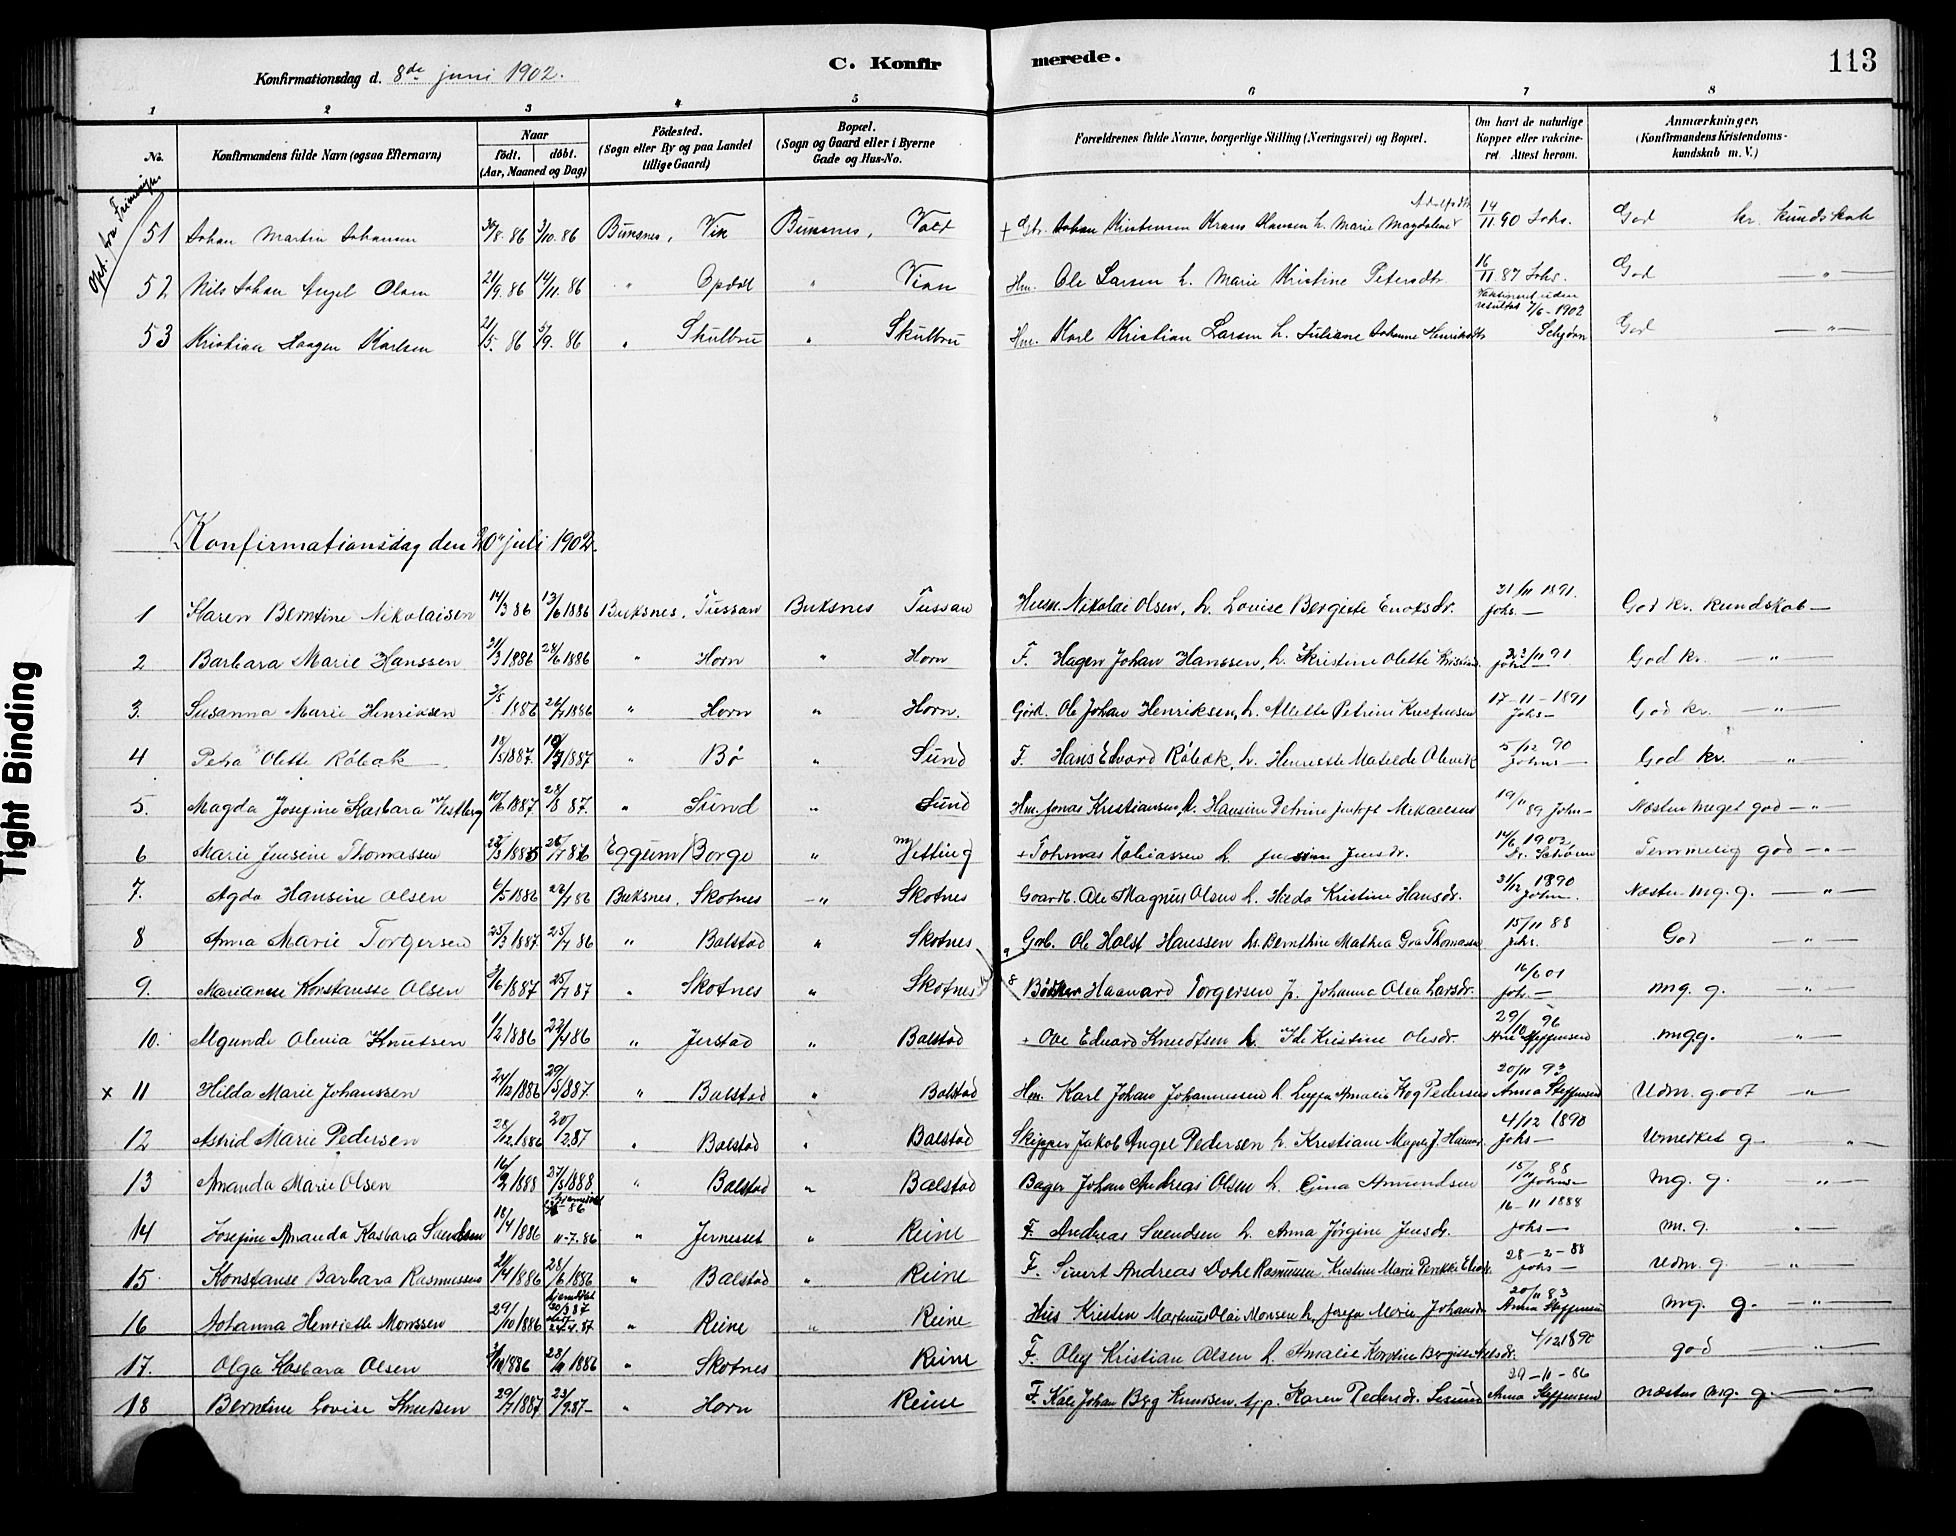 113
Konfirmationsdag d. 8de juni 1902.
C. Konfirmerede.
1 2 3 4 5 6 7 8
No.
Konfirmandens fulde Navn (ogsaa Efternavn)
Naar
födt. döbt.
(Aar, Maaned og Dag)
Födested.
(Sogn eller By og paa Landet
tillige Gaard)
Bopæl.
(Sogn og Gaard eller i Byerne
Gade og Hus-No.
Forældrenes fulde Navne, borgerlige Stilling (Næringsvei) og Bopæl.
Om havt de naturlige
Kopper eller vaccine-
ret Attest herom.
Anmærkninger,
(Konfirmandens Kristendoms-
kundskab m. V.)
51 Johan Martin Johansen 30/8. 86 3/10. 86 Buksnes, Vik Buksnes, Johan Kristensen Hansen h. Marie Magdalene 14/11 90 Johs. God kr. kundskab
52 Nils Johan Angel Olsen 21/9. 86 14/11. 86 " Opdøl " Hm. Ole Larsen h. Marie Kristine Petersdtr. 16/11 87 Johs. God — " —
Vaksineret uden
resultat 7/6 - 1902
53 Kristian Haagen Karlsen 21/5. 86 5/9. 86 " Skulbru " Skulbru Hm. Karl Kristian Larsen h. Juliane Johanne Henriksdtr Schjørn God — " —
Konfirmationsdag den 20de juli 1902.
1 Karen Berntine Nikolaisen 14/3 86 13/6 1886 Buksnes, Tussan Buksnes Tussan Husm. Nikolai Olsen, h. Lovise Bergitte Enoksdr. 21/11 1891. Johs. — God kr. kundskab —
2 Barbara Marie Hanssen 21/3 1886 28/6 1886 " Horn " Horn F. Hagen Johan Hanssen, h. Kristine Olette 23/11 91 Johs — God kr. — " —
3. Susanna Marie Henriksen 3/5 1886 26/7 1886 " Horn " Horn. Gård. Ole Johan Henriksen, h. Allette Petrine Kristensen 17-11-1891 Johs — God kr. — " —
4 Petra Olette Røbek 1887. 1887 " Bø " Sund F. Hans Edvard Røbek, h. Henriette Matilde 5/12 90 Johns — God kr. "
5. Magda Josefine Kasbara Vestberg 10/6 1887. 28/8 87. " Sund " Sund Hm. Jonas Kristiansen, h. Hansine Petrine 19/11 89 John — Næsten meget god — " —
6 Marie Jensine Thomassen Eggum Borge " Vetting + h. Jensine Jensdr. 14/6 1902, Dr. Schørn Temmelig god — " —
7. Agda Hansine Olsen 6/5 1886 22/8 86 Buksnes, Skotnes — " Skotnes Gaardb. Ole Magnus Olsen h. Hilda Kristine Hansdr. 31/12 1890 John. Næsten mg. g. — " —
8 Anna Marie Torgersen 25/3 1887. 25/7 86 " Balstad " Skotnes Grb. Ole Holst Hanssen h. Bernthine Mathea 15/11 88 Johs. God — " —
9. Marianne Konstansse Olsen 2/6 1887 25/7 87 " Skotnes " Skotnes 8 Bødker Haavard Torgersen h. Johanna Olea Larsdr. 16/6 01 Joh. — mg. g. "
10. Algunde Olevia Knutsen 1/2 1886 22/4 86 " Jerstad " Balstad + Ove Edvard Knudtsen h. Ida Kristine Olesdr. 29/10 96 Anne Steffensen mgg. " —
x 11 Hilda Marie Johanssen 24/12 1886 29/5 1887. " Balstad " Balstad Hm. Karl Johan Johannessen h. 20/11 93 Anna Steffensen Udm. godt " —
12 Astrid Marie Pedersen 28/12. 1886 20/2. 87 " Balstad " Balstad Skipper Jakob Angel Pedersen h. Kristiane 4/12 1890 Johs — Umerket g. " —
13 Amanda Marie Olsen 16/2 1888 27/5 1888 " Balstad " Balstad Bager Johan Andreas Olsen h. Gina Amundsen 15/11 88 Johns — mg. g. " —
14 Josefine Amanda Kasbara Svendsen 18/4 1886 11-7.86 " Jernesset " Reine F. Andreas Svendsen h. Anna Jørgine Jensdr. 16-11 1888 Johs — m. g. " —
15. Konstanse Barbara Rasmussen 21/4 1886 28/6 1886 " Balstad " Reine F. Sivert Andreas Dahl Rasmussen, Kristine Marie 28-2-88 Johs — Udm. g. " —
16 Johanna Henriette Monssen 29/10 1886 hjemdøbt 20/3 87 24.4.87 " Reine " Reine Hus Kristen Martinus Olai Monsen h. Josefa Marie Johansdr. 20/11 83 Anna Steffensen mg. g. — " —
17. Olga Kasbara Olsen 1886 28/11 1886 " Skotnes Reine F. Oluf Kristian Olsen h. Amalie 4/12 1890 god — " —
18 Berntine Lovise Knutsen 29/7 1887 23/9.87 — " Horn Reine F. Kale Johan Berg Knudsen Karen Pedersdr. 29-11-86 Anna Steffensen næsten mg. g. — " —
Tight Binding